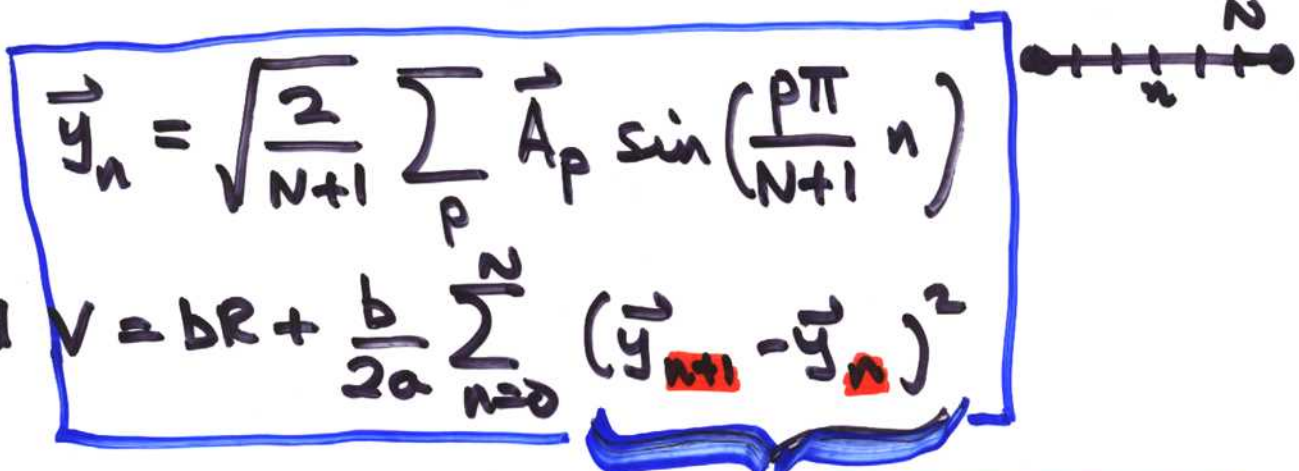 N
n
\vec{y}_n = \sqrt{\frac{2}{N+1}} \sum_p \vec{A}_p \sin\left(\frac{p\pi}{N+1} n\right)
V = bR + \frac{b}{2a} \sum_{n=0}^{N} (\vec{y}_{n+1} - \vec{y}_n)^2